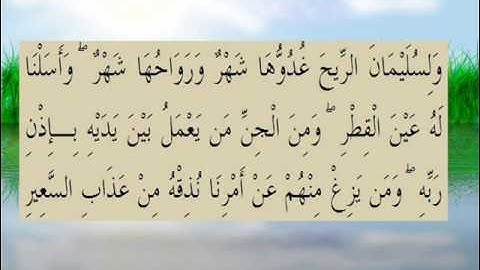 وَلِسُلَيْمَانَ الرِّيحَ غُدُوُّهَا شَهْرٌ وَرَوَاحُهَا شَهْرٌ ۖ وَأَسَلْنَا
لَهُ عَيْنَ الْقِطْرِ ۖ وَمِنَ الْجِنِّ مَن يَعْمَلُ بَيْنَ يَدَيْهِ بِإِذْنِ
رَبِّهِ ۖ وَمَن يَزِغْ مِنْهُمْ عَنْ أَمْرِنَا نُذِقْهُ مِنْ عَذَابِ السَّعِيرِ